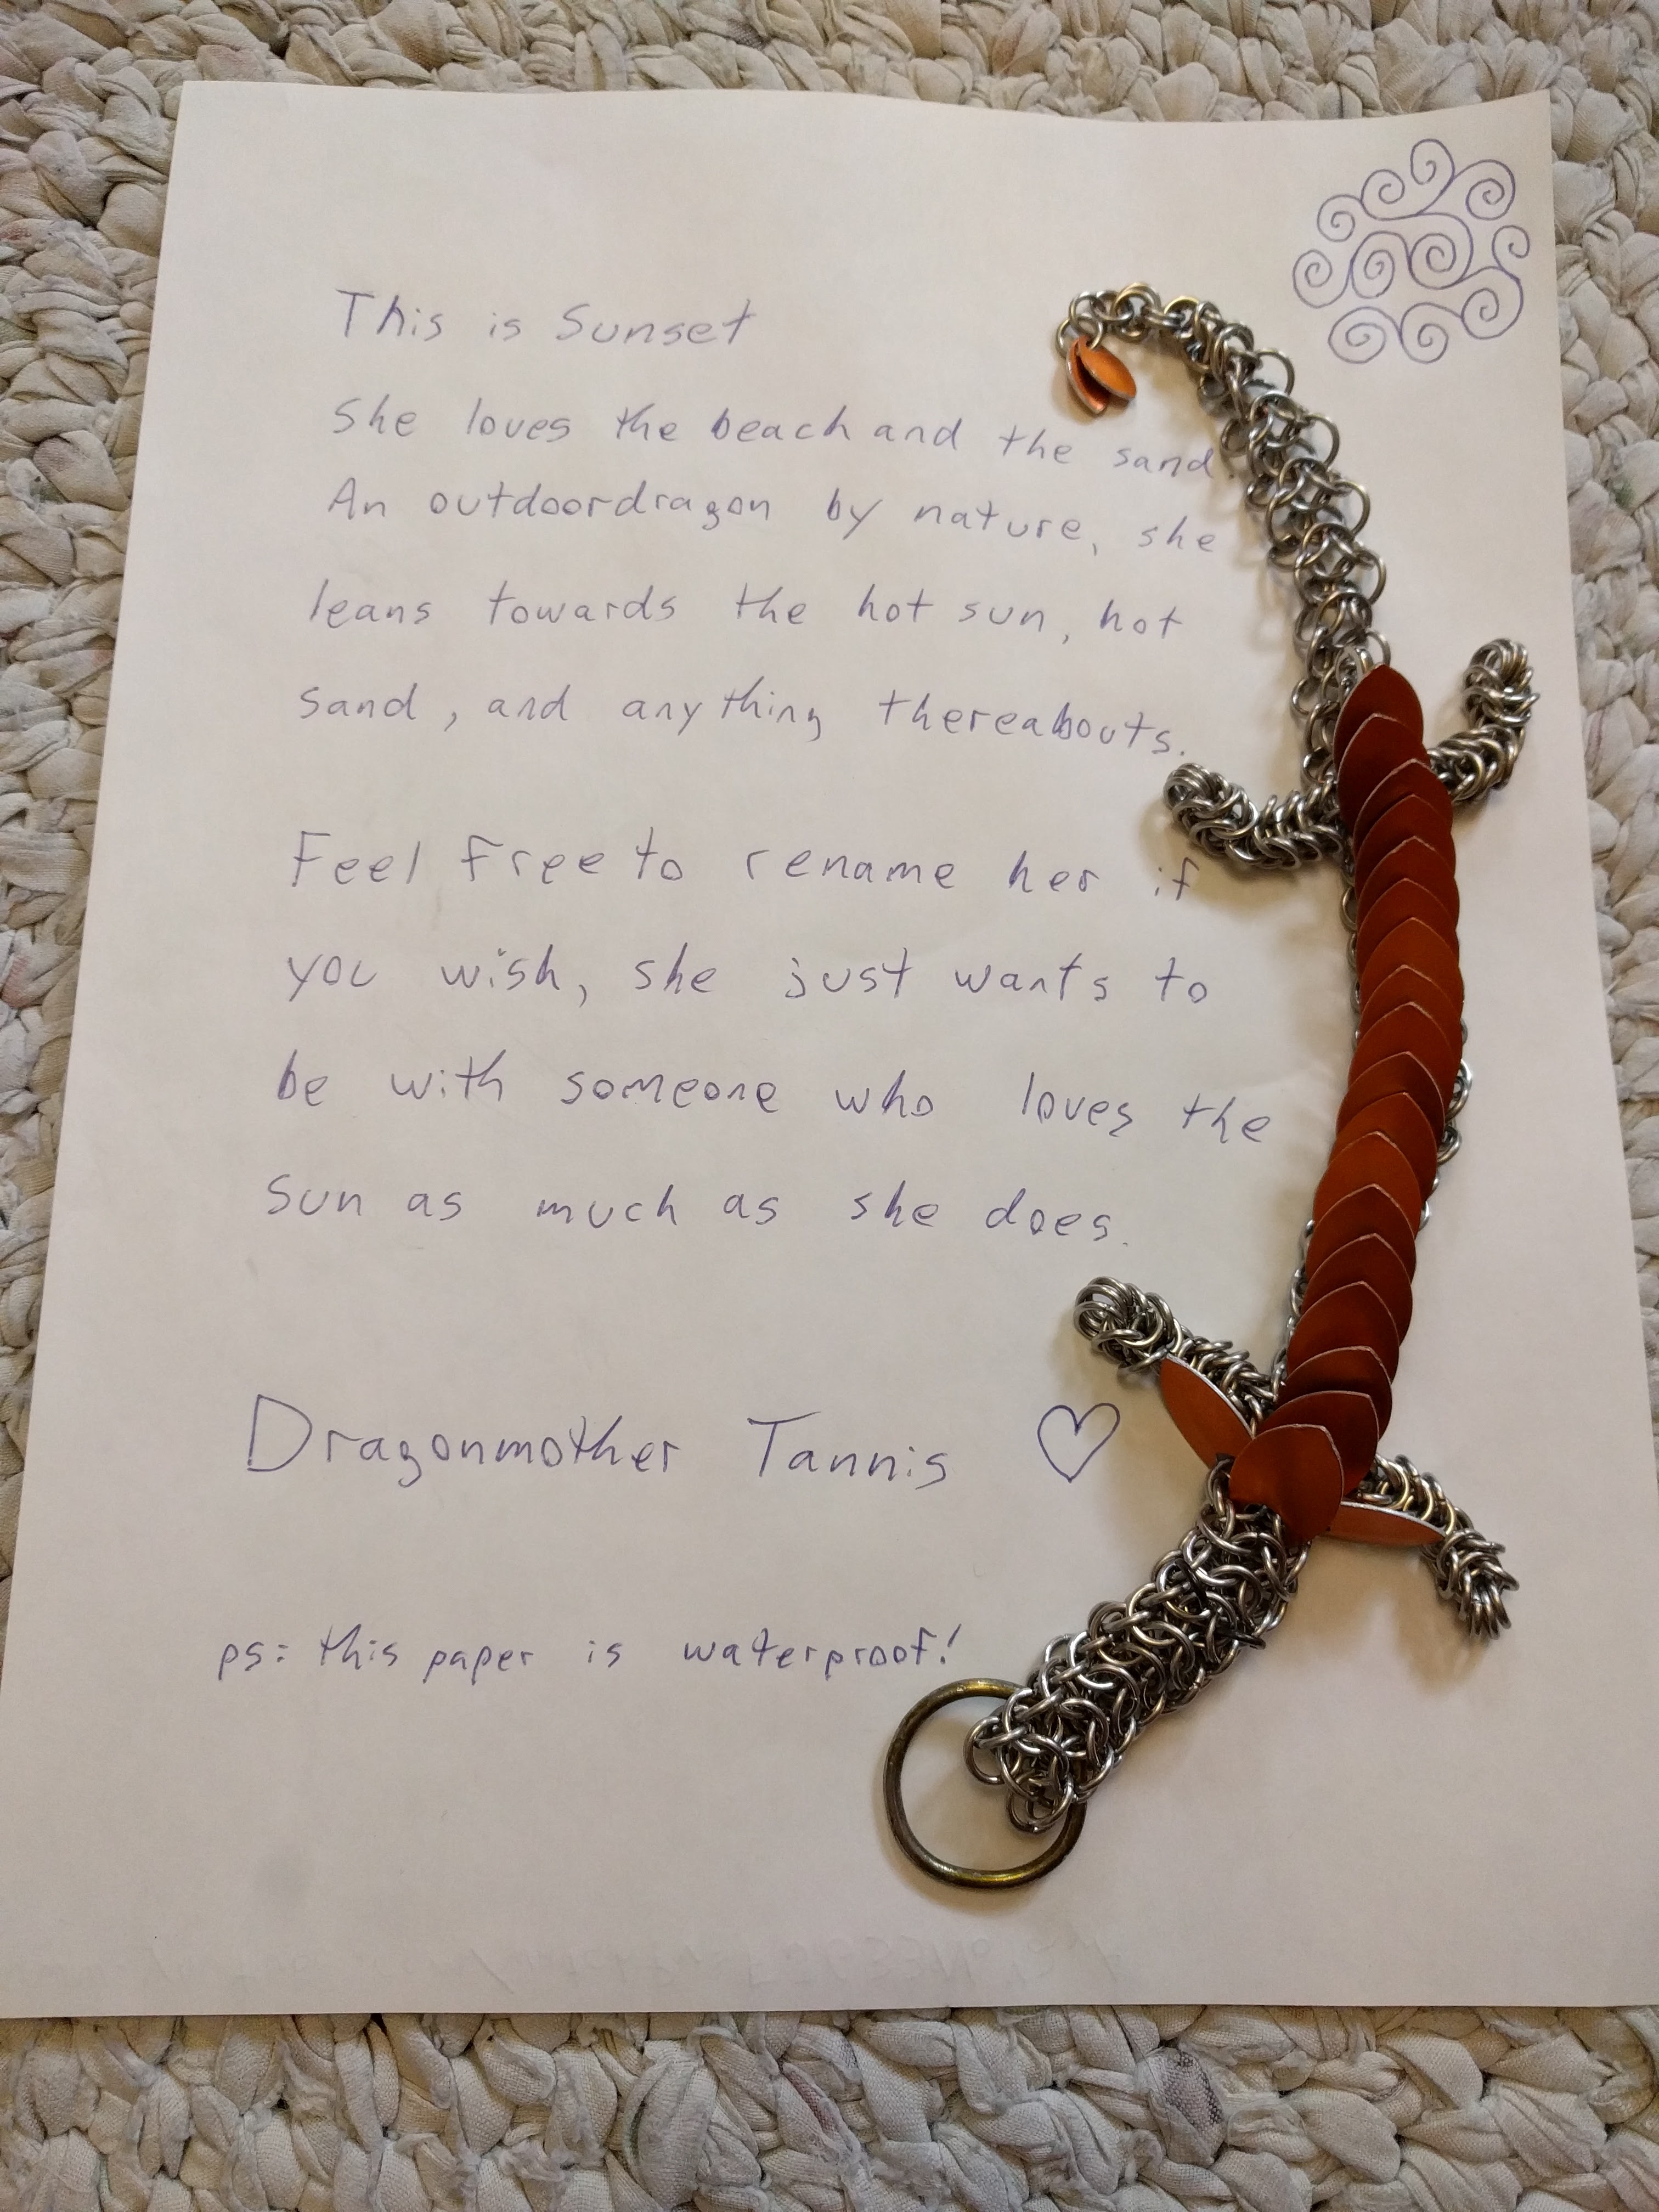 This is Sunset
She loves the beach and the sand.
An outdoordragon by nature, she
leans towards the hot sun, hot
sand, and anything thereabouts.
Feel free to rename her if
you wish, she just wants to
be with someone who loves the
sun as much as she does.
Dragonmother Tannis ♡
ps: this paper is waterproof!